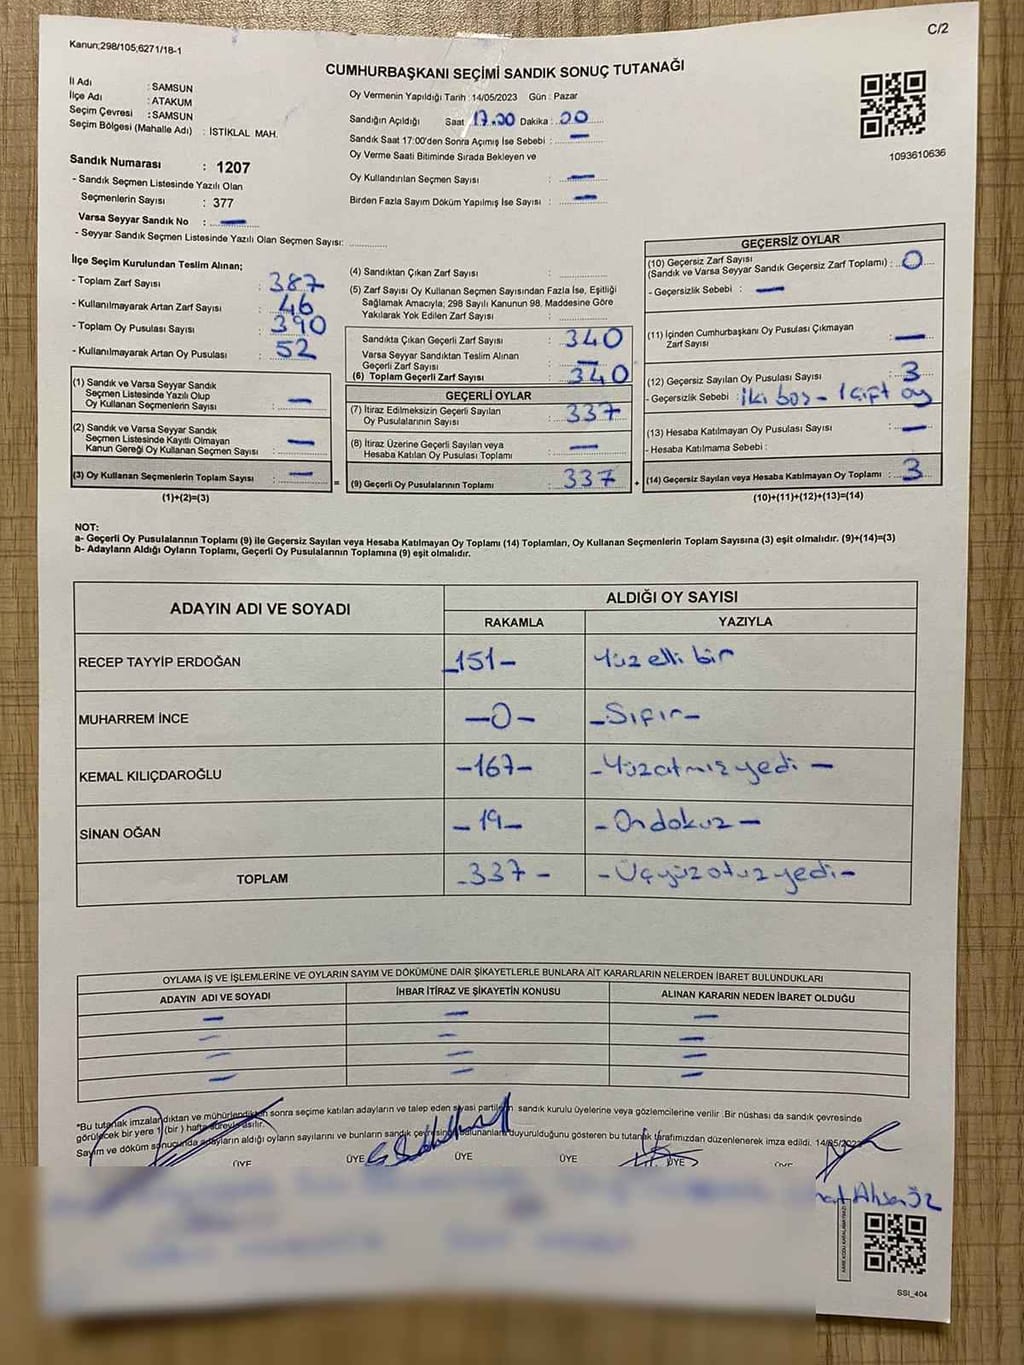 C/2
Kanun;298/105;6271/18-1
CUMHURBAŞKANI SEÇİMİ SANDIK SONUÇ TUTANAĞI
İl Adı : SAMSUN
İlçe Adı : ATAKUM
Seçim Çevresi : SAMSUN
Seçim Bölgesi (Mahalle Adı) : İSTİKLAL MAH.
Sandık Numarası : 1207
- Sandık Seçmen Listesinde Yazılı Olan
Seçmenlerin Sayısı : 377
Varsa Seyyar Sandık No : —
- Seyyar Sandık Seçmen Listesinde Yazılı Olan Seçmen Sayısı:
Oy Vermenin Yapıldığı Tarih :14/05/2023 Gün : Pazar
Sandığın Açıldığı Saat : 17.00 Dakika : 00
Sandık Saat 17:00'den Sonra Açımış İse Sebebi : —
Oy Verme Saati Bitiminde Sırada Bekleyen ve
Oy Kullandırılan Seçmen Sayısı : —
Birden Fazla Sayım Döküm Yapılmış İse Sayısı : —
1093610636
İlçe Seçim Kurulundan Teslim Alınan;
- Toplam Zarf Sayısı : 387
- Kullanılmayarak Artan Zarf Sayısı : 46
- Toplam Oy Pusulası Sayısı : 390
- Kullanılmayarak Artan Oy Pusulası : 52
(1) Sandık ve Varsa Seyyar Sandık
Seçmen Listesinde Yazılı Olup
Oy Kullanan Seçmenlerin Sayısı : —
(2) Sandık ve Varsa Seyyar Sandık
Seçmen Listesinde Kayıtlı Olmayan
Kanun Gereği Oy Kullanan Seçmen Sayısı : —
(3) Oy Kullanan Seçmenlerin Toplam Sayısı : —
(1)+(2)=(3)
(4) Sandıktan Çıkan Zarf Sayısı :
(5) Zarf Sayısı Oy Kullanan Seçmen Sayısından Fazla İse, Eşitliği
Sağlamak Amacıyla; 298 Sayılı Kanunun 98. Maddesine Göre
Yakılarak Yok Edilen Zarf Sayısı :
Sandıkta Çıkan Geçerli Zarf Sayısı : 340
Varsa Seyyar Sandıktan Teslim Alınan
Geçerli Zarf Sayısı : —
(6) Toplam Geçerli Zarf Sayısı : 340
GEÇERLİ OYLAR
(7) İtiraz Edilmeksizin Geçerli Sayılan
Oy Pusulalarının Sayısı : 337
(8) İtiraz Üzerine Geçerli Sayılan veya
Hesaba Katılan Oy Pusulası Toplamı : —
= (9) Geçerli Oy Pusulalarının Toplamı : 337
GEÇERSİZ OYLAR
(10) Geçersiz Zarf Sayısı
(Sandık ve Varsa Seyyar Sandık Geçersiz Zarf Toplamı) : 0
- Geçersizlik Sebebi : —
(11) İçinden Cumhurbaşkanı Oy Pusulası Çıkmayan
Zarf Sayısı : —
(12) Geçersiz Sayılan Oy Pusulası Sayısı : 3
- Geçersizlik Sebebi : iki boş - 1 çift oy
(13) Hesaba Katılmayan Oy Pusulası Sayısı : —
- Hesaba Katılmama Sebebi :
+ (14) Geçersiz Sayılan veya Hesaba Katılmayan Oy Toplamı : 3
(10)+(11)+(12)+(13)=(14)
NOT:
a- Geçerli Oy Pusulalarının Toplamı (9) ile Geçersiz Sayılan veya Hesaba Katılmayan Oy Toplamı (14) Toplamları, Oy Kullanan Seçmenlerin Toplam Sayısına (3) eşit olmalıdır. (9)+(14)=(3)
b- Adayların Aldığı Oyların Toplamı, Geçerli Oy Pusulalarının Toplamına (9) eşit olmalıdır.
ADAYIN ADI VE SOYADI ALDIĞI OY SAYISI
RAKAMLA YAZIYLA
RECEP TAYYİP ERDOĞAN -151- Yüz elli bir
MUHARREM İNCE -0- -Sıfır-
KEMAL KILIÇDAROĞLU -167- -Yüzatmış yedi -
SİNAN OĞAN -19- -Ondokuz-
TOPLAM -337- -Üçyüz otuz yedi-
OYLAMA İŞ VE İŞLEMLERİNE VE OYLARIN SAYIM VE DÖKÜMÜNE DAİR ŞİKAYETLERLE BUNLARA AİT KARARLARIN NELERDEN İBARET BULUNDUKLARI
ADAYIN ADI VE SOYADI İHBAR İTİRAZ VE ŞİKAYETİN KONUSU ALINAN KARARIN NEDEN İBARET OLDUĞU
— — —
— — —
— — —
— — —
*Bu tutanak imzalandıktan ve mühürlendikten sonra seçime katılan adayların ve talep eden siyasi partilerin sandık kurulu üyelerine veya gözlemcilerine verilir .Bir nüshası da sandık çevresinde
görülecek bir yere 1 (bir ) hafta süreyle asılır.
Sayım ve döküm sonucunda adayların aldığı oyların sayılarını ve bunların sandık çevresinde bulunanlara duyurulduğunu gösteren bu tutanak tarafımızdan düzenlenerek imza edildi. 14/05/2023
ÜYE ÜYE ÜYE ÜYE ÜYE ÜYE
SSI_404